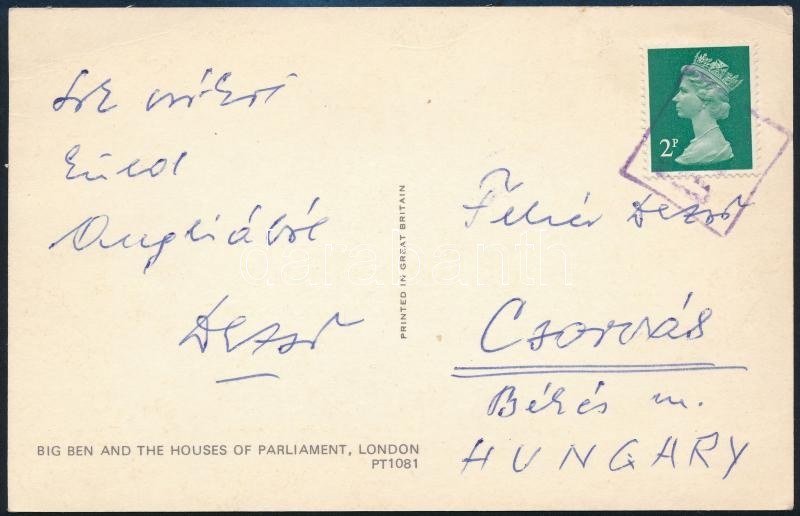 Sok
küld
Angliából
Dezső
BIG BEN AND THE HOUSES OF PARLIAMENT, LONDON
PT1081
PRINTED IN GREAT BRITAIN
2P
Fehér Dezső
Csorvás
Békés m.
HUNGARY
darabanth